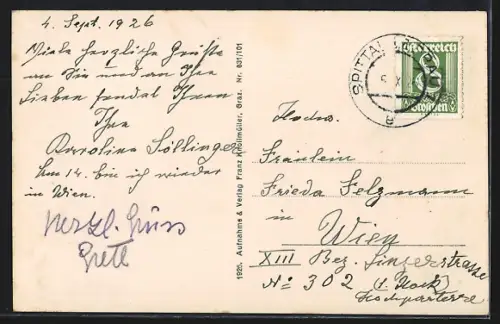 4. Sept. 1926
Viele herzliche Grüße
an Sie und an Ihre
Lieben sendet Ihnen
Ihre
Karoline Söllinger
Am 14. bin ich wieder
in Wien.
Herzl. Gruss
Grete
1925. Aufnahme & Verlag Franz Knollmüller, Graz. Nr. 831/101
SPITTAL
Österreich
8
Groschen
Hochw.
Fräulein
Frieda Felzmann
in
Wien
XIII Bez. Linzerstrasse
No 302 (1. Stock)
Hochparterre